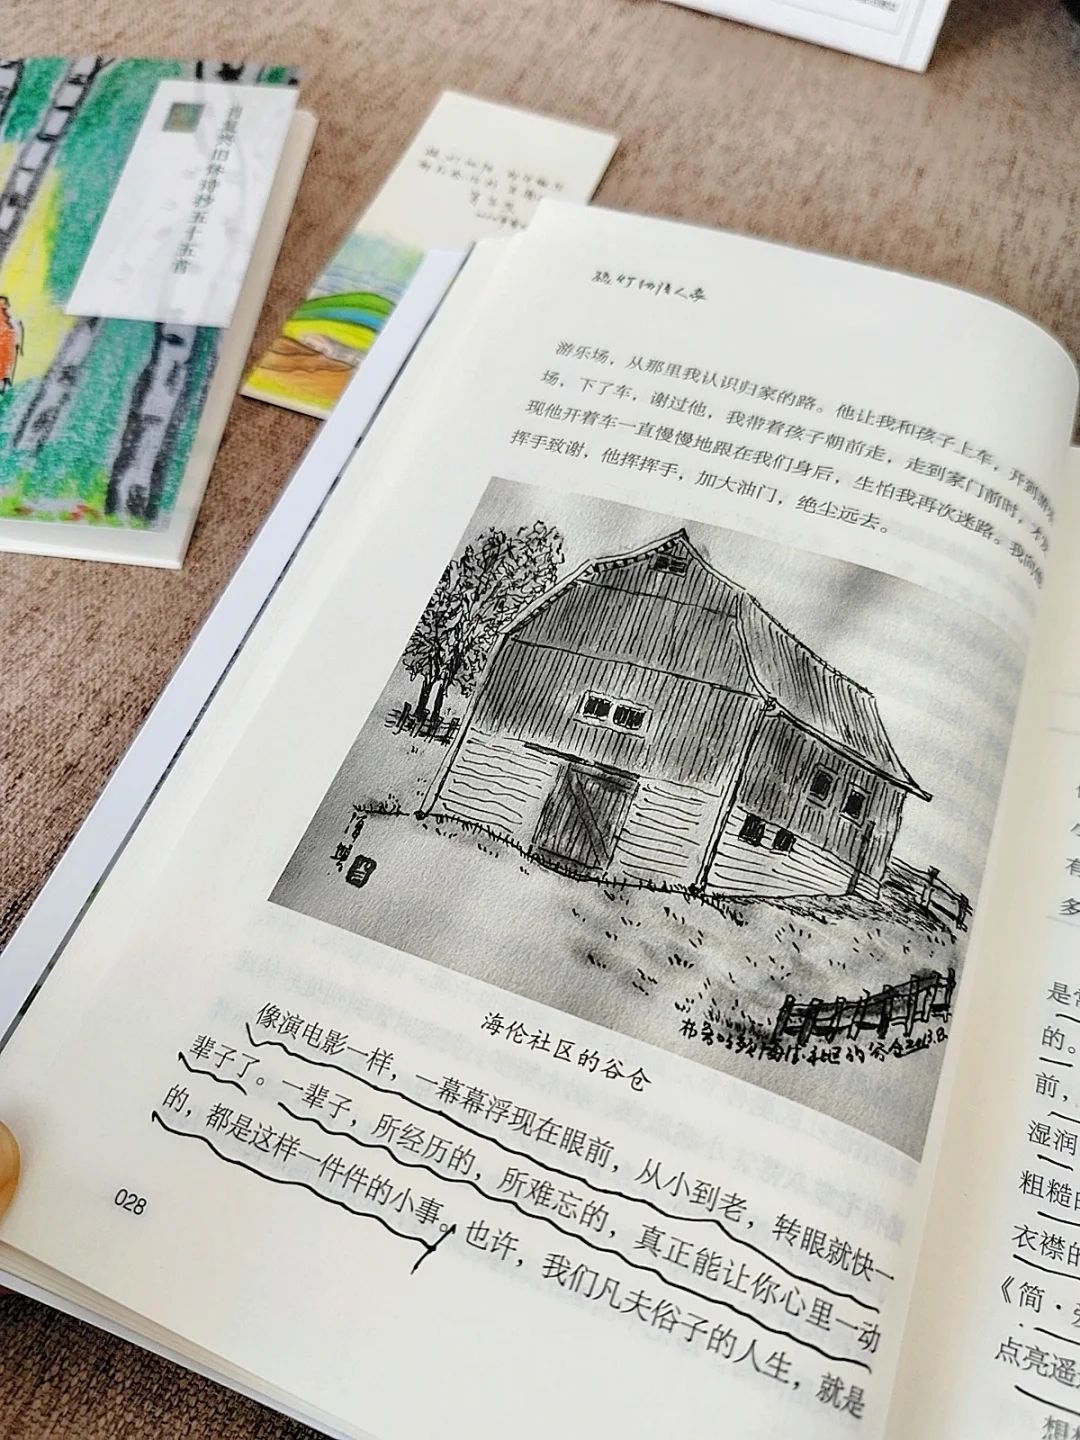 肖复兴旧体诗抄五十五首
游乐场，从那里我认识归家的路。他让我和孩子上车，开到游乐
场，下了车，谢过他，我带着孩子朝前走，走到家门前时，才发
现他开着车一直慢慢地跟在我们身后，生怕我再次迷路。我向他
挥手致谢，他挥挥手，加大油门，绝尘远去。
海伦社区的谷仓
像演电影一样，一幕幕浮现在眼前，从小到老，转眼就快一
辈子了。一辈子，所经历的，所难忘的，真正能让你心里一动
的，都是这样一件件的小事。也许，我们凡夫俗子的人生，就是
028
有
多
是
的。
前，
湿润
粗糙
衣襟的
《简·爱
点亮遥
想